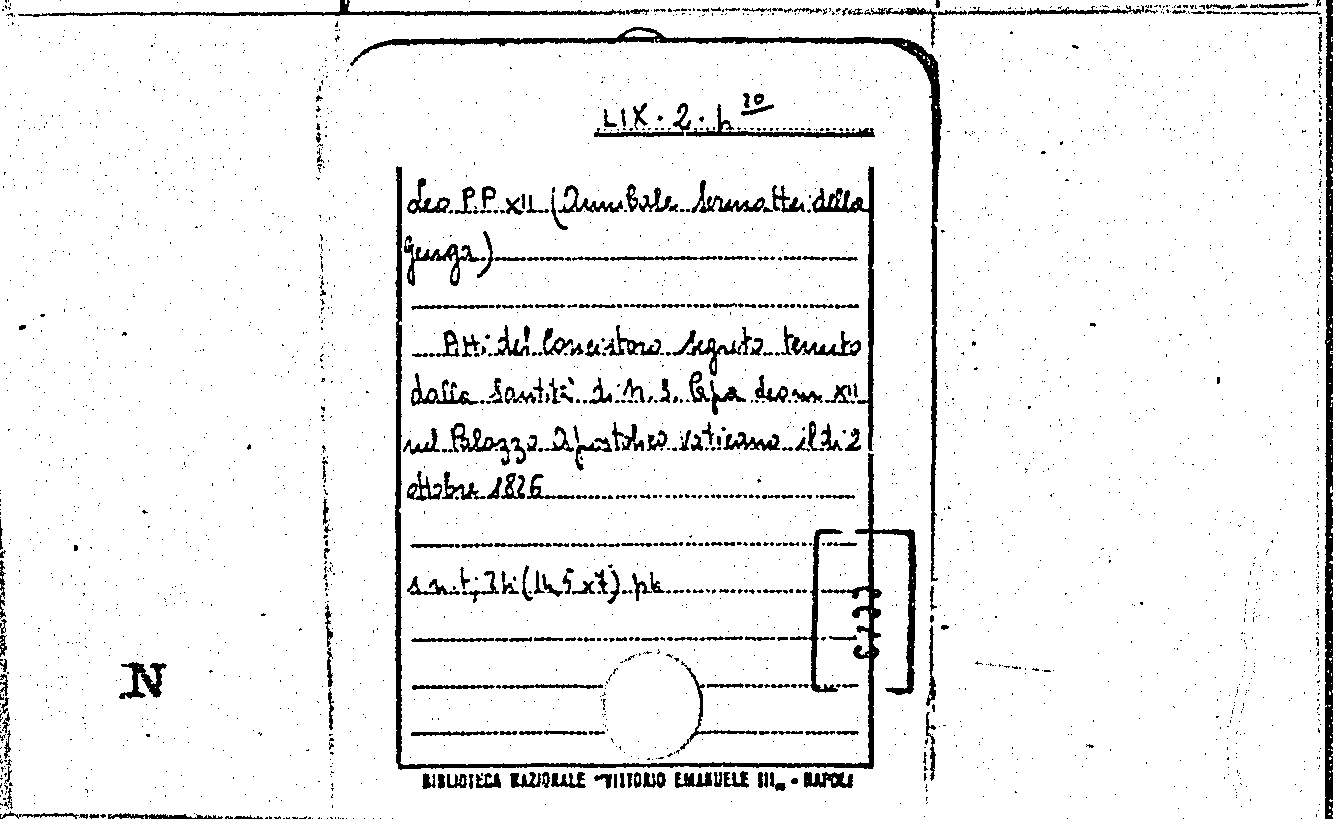 LIX. 2. h 20
Leo P.P. XII (Annibale Sermattei della
Genga)
Atti del Concistoro segreto tenuto
dalla Santità di N. S. Papa Leone XII
nel Palazzo Apostolico Vaticano il dì 2
ottobre 1826
s.n.t;
N
BIBLIOTECA NAZIONALE "VITTORIO EMANUELE III" - NAPOLI